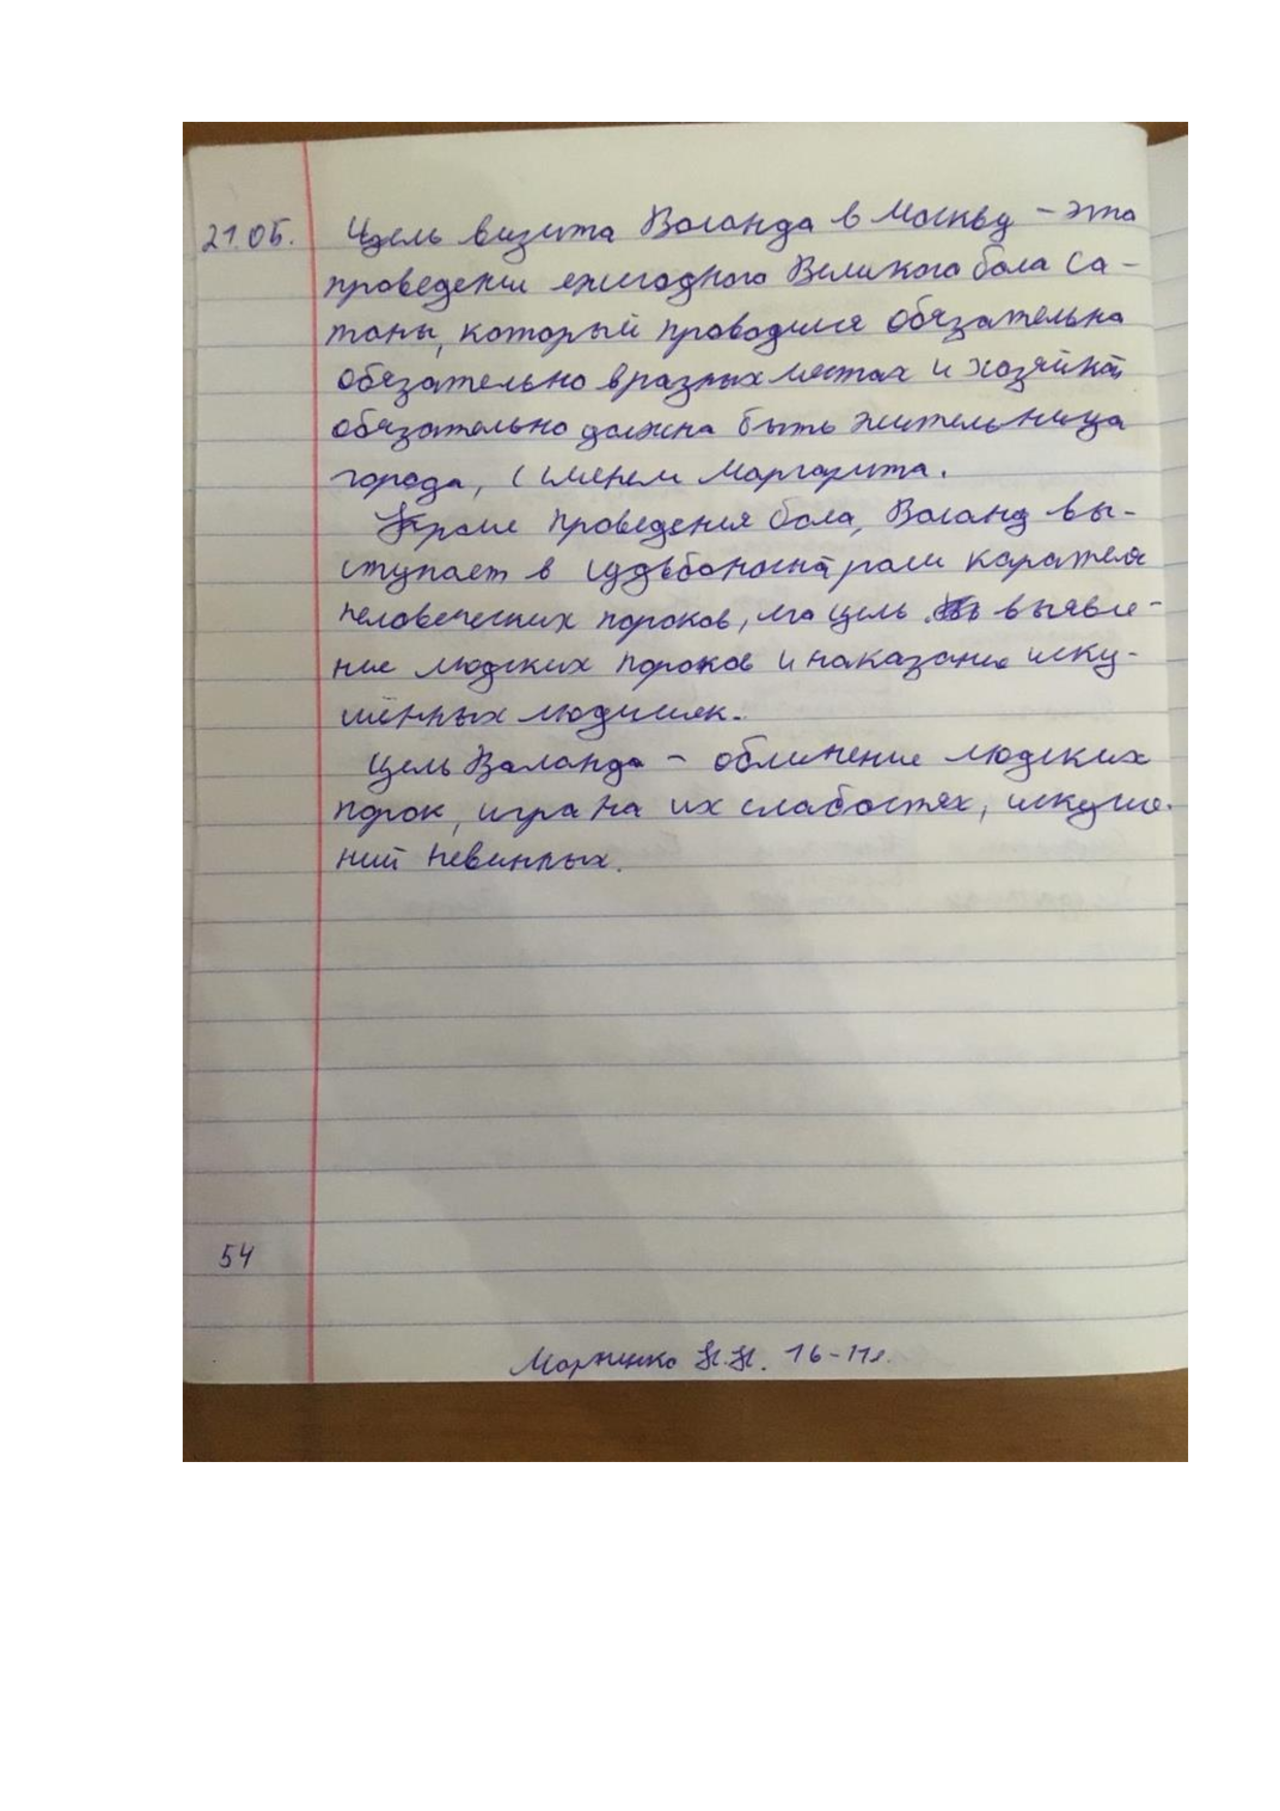 21.05. Цель визита Воланда в Москву - это
проведение ежегодного Великого бала Са-
таны, который проводится обязательно
обязательно в разных местах и хозяйкой
обязательно должна быть жительница
города, с именем Маргарита.
Кроме проведения бала, Воланд вы-
ступает в судьбоносной роли карателя
человеческих пороков, его цель выявле-
ние людских пороков и наказание иску-
шённых людишек.
Цель Воланда - обличение людских
порок, игра на их слабостях, искуше-
ний невинных.
54
16-11